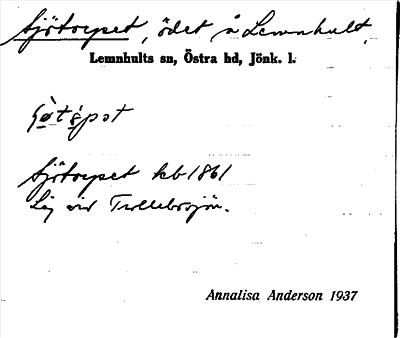 Sjötorpet, ödet å Lemnhult,
Lemnhults sn, Östra hd, Jönk. l.
Sjötorpet kb 1861
Låg vid Trollebosjön.
Annalisa Anderson 1937